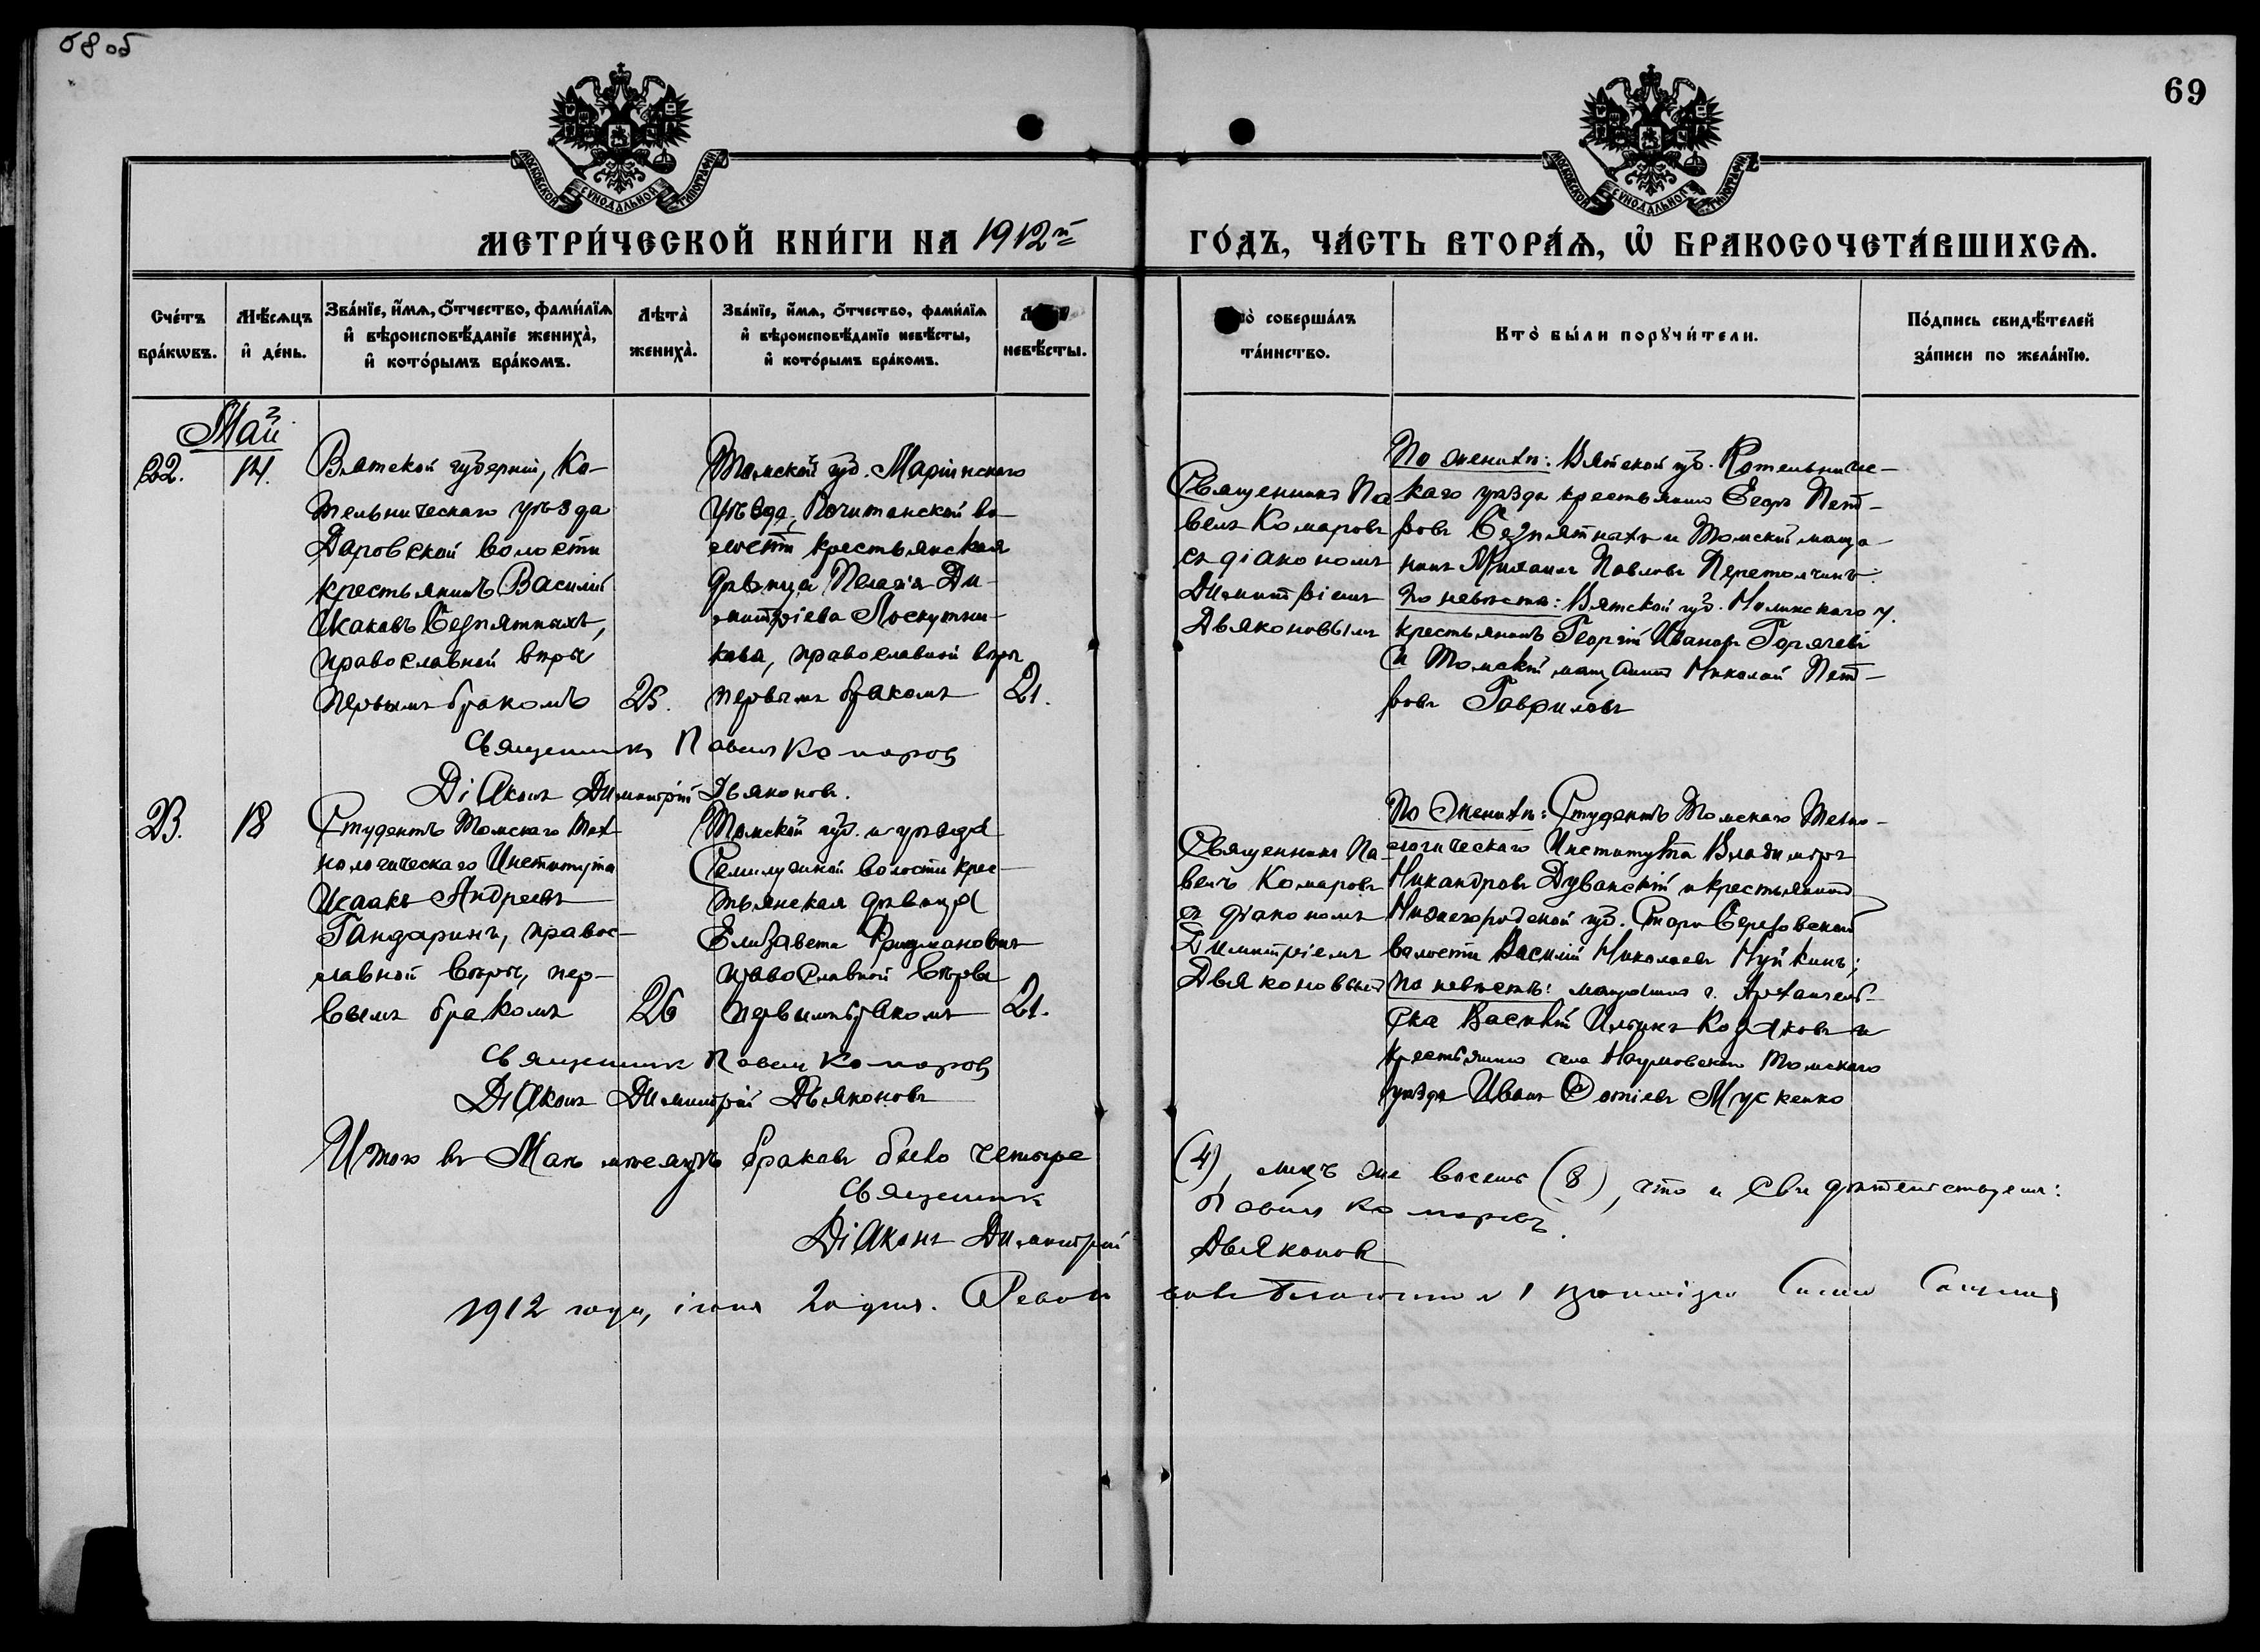 68 об
69
МОСКОВСКОЙ СѴНОДАЛЬНОЙ ТИПОГРАФІИ
МОСКОВСКОЙ СѴНОДАЛЬНОЙ ТИПОГРАФІИ
МЕТРИ́ЧЕСКОЙ КНИ́ГИ НА 1912й
ГО́ДЪ, ЧА́СТЬ ВТОРА́Ѧ, Ѡ҆ БРАКОСОЧЕТА́ВШИХСѦ.
Сче́тъ
бра́кѡвъ.
Мѣ́сѧцъ
и҆ де́нь.
Зва́нїе, и҆́мѧ, ѻ҆́тчество, фами́лїѧ
и҆ вѣроисповѣ́данїе жениха̀,
и҆ кото́рымъ бра́комъ.
Лѣта̀
жениха̀.
Зва́нїе, и҆́мѧ, ѻ҆́тчество, фами́лїѧ
и҆ вѣроисповѣ́данїе невѣ́сты,
и҆ кото́рымъ бра́комъ.
невѣ́сты.
совершáлъ
та́инство.
Кто̀ бы́ли порꙋчи́тели.
По́дпись свидѣ́телей
за́писи по жела́нїю.
Май
22.
14.
Вятской губерніи, Ко-
тельническаго уѣзда
Даровской волости
крестьянинъ Василій
Исаковъ Безпятныхъ,
православной вѣры
первымъ бракомъ
25.
Томской губ. Маріинскаго
уѣзда, Почитанской во-
лости крестьянская
дѣвица Пелагія Ди-
митріева Лоскутни-
кова, православной вѣры
первымъ бракомъ
21.
Священникъ Па
велъ Комаровъ
съ діакономъ
Димитріемъ
Дьяконовымъ
По женихѣ: Вятской губ. Котельниче-
каго уѣзда крестьянинъ Егоръ Пет-
ровъ Безпятныхъ и Томскій мѣща-
нинъ Михаилъ Павловъ Перетолчинъ.
По невѣстѣ: Вятской губ. Нолинскаго у.
крестьянинъ Георгій Ивановъ Горячевъ
и Томскій мѣщанинъ Николай Пет-
ровъ Гавриловъ
Священникъ Павелъ Комаровъ
Діаконъ Димитрій Дьяконовъ.
23.
18
Студентъ Томскаго Тех-
нологическаго Института
Исаакъ Андреевъ
Гандаринъ, правос-
лавной вѣры, пер-
вымъ бракомъ
26
Томской губ. и уѣзда
Семилужной волости крес-
тьянская дѣвица
Елизавета Фридмановичъ
православной вѣры
первымъ бракомъ
21.
Священникъ Па-
велъ Комаровъ
съ діакономъ
Димитріемъ
Дьяконовымъ
По женихѣ: Студентъ Томскаго Техно-
логическаго Института Владиміръ
Никандровъ Дуванскій и крестьянинъ
Нижегородской губ. Старо Березовской
волости Василій Николаевъ Нуйкинъ;
по невѣстѣ: мѣщанинъ г. Архангель-
ска Василій Ильинъ Козаковъ и
крестьянинъ села Наумовскаго Томскаго
уѣзда Иванъ Фотіевъ Мускенко
Священникъ Павелъ Комаровъ
Діаконъ Димитрій Дьяконовъ
Итого въ Маѣ мѣсяцѣ браковъ было четыре (4), лицъ же восемь (8), что и свидѣтельствуемъ:
Священникъ Павелъ Комаровъ.
Діаконъ Димитрій Дьяконовъ
1912 года, іюня 20 дня.